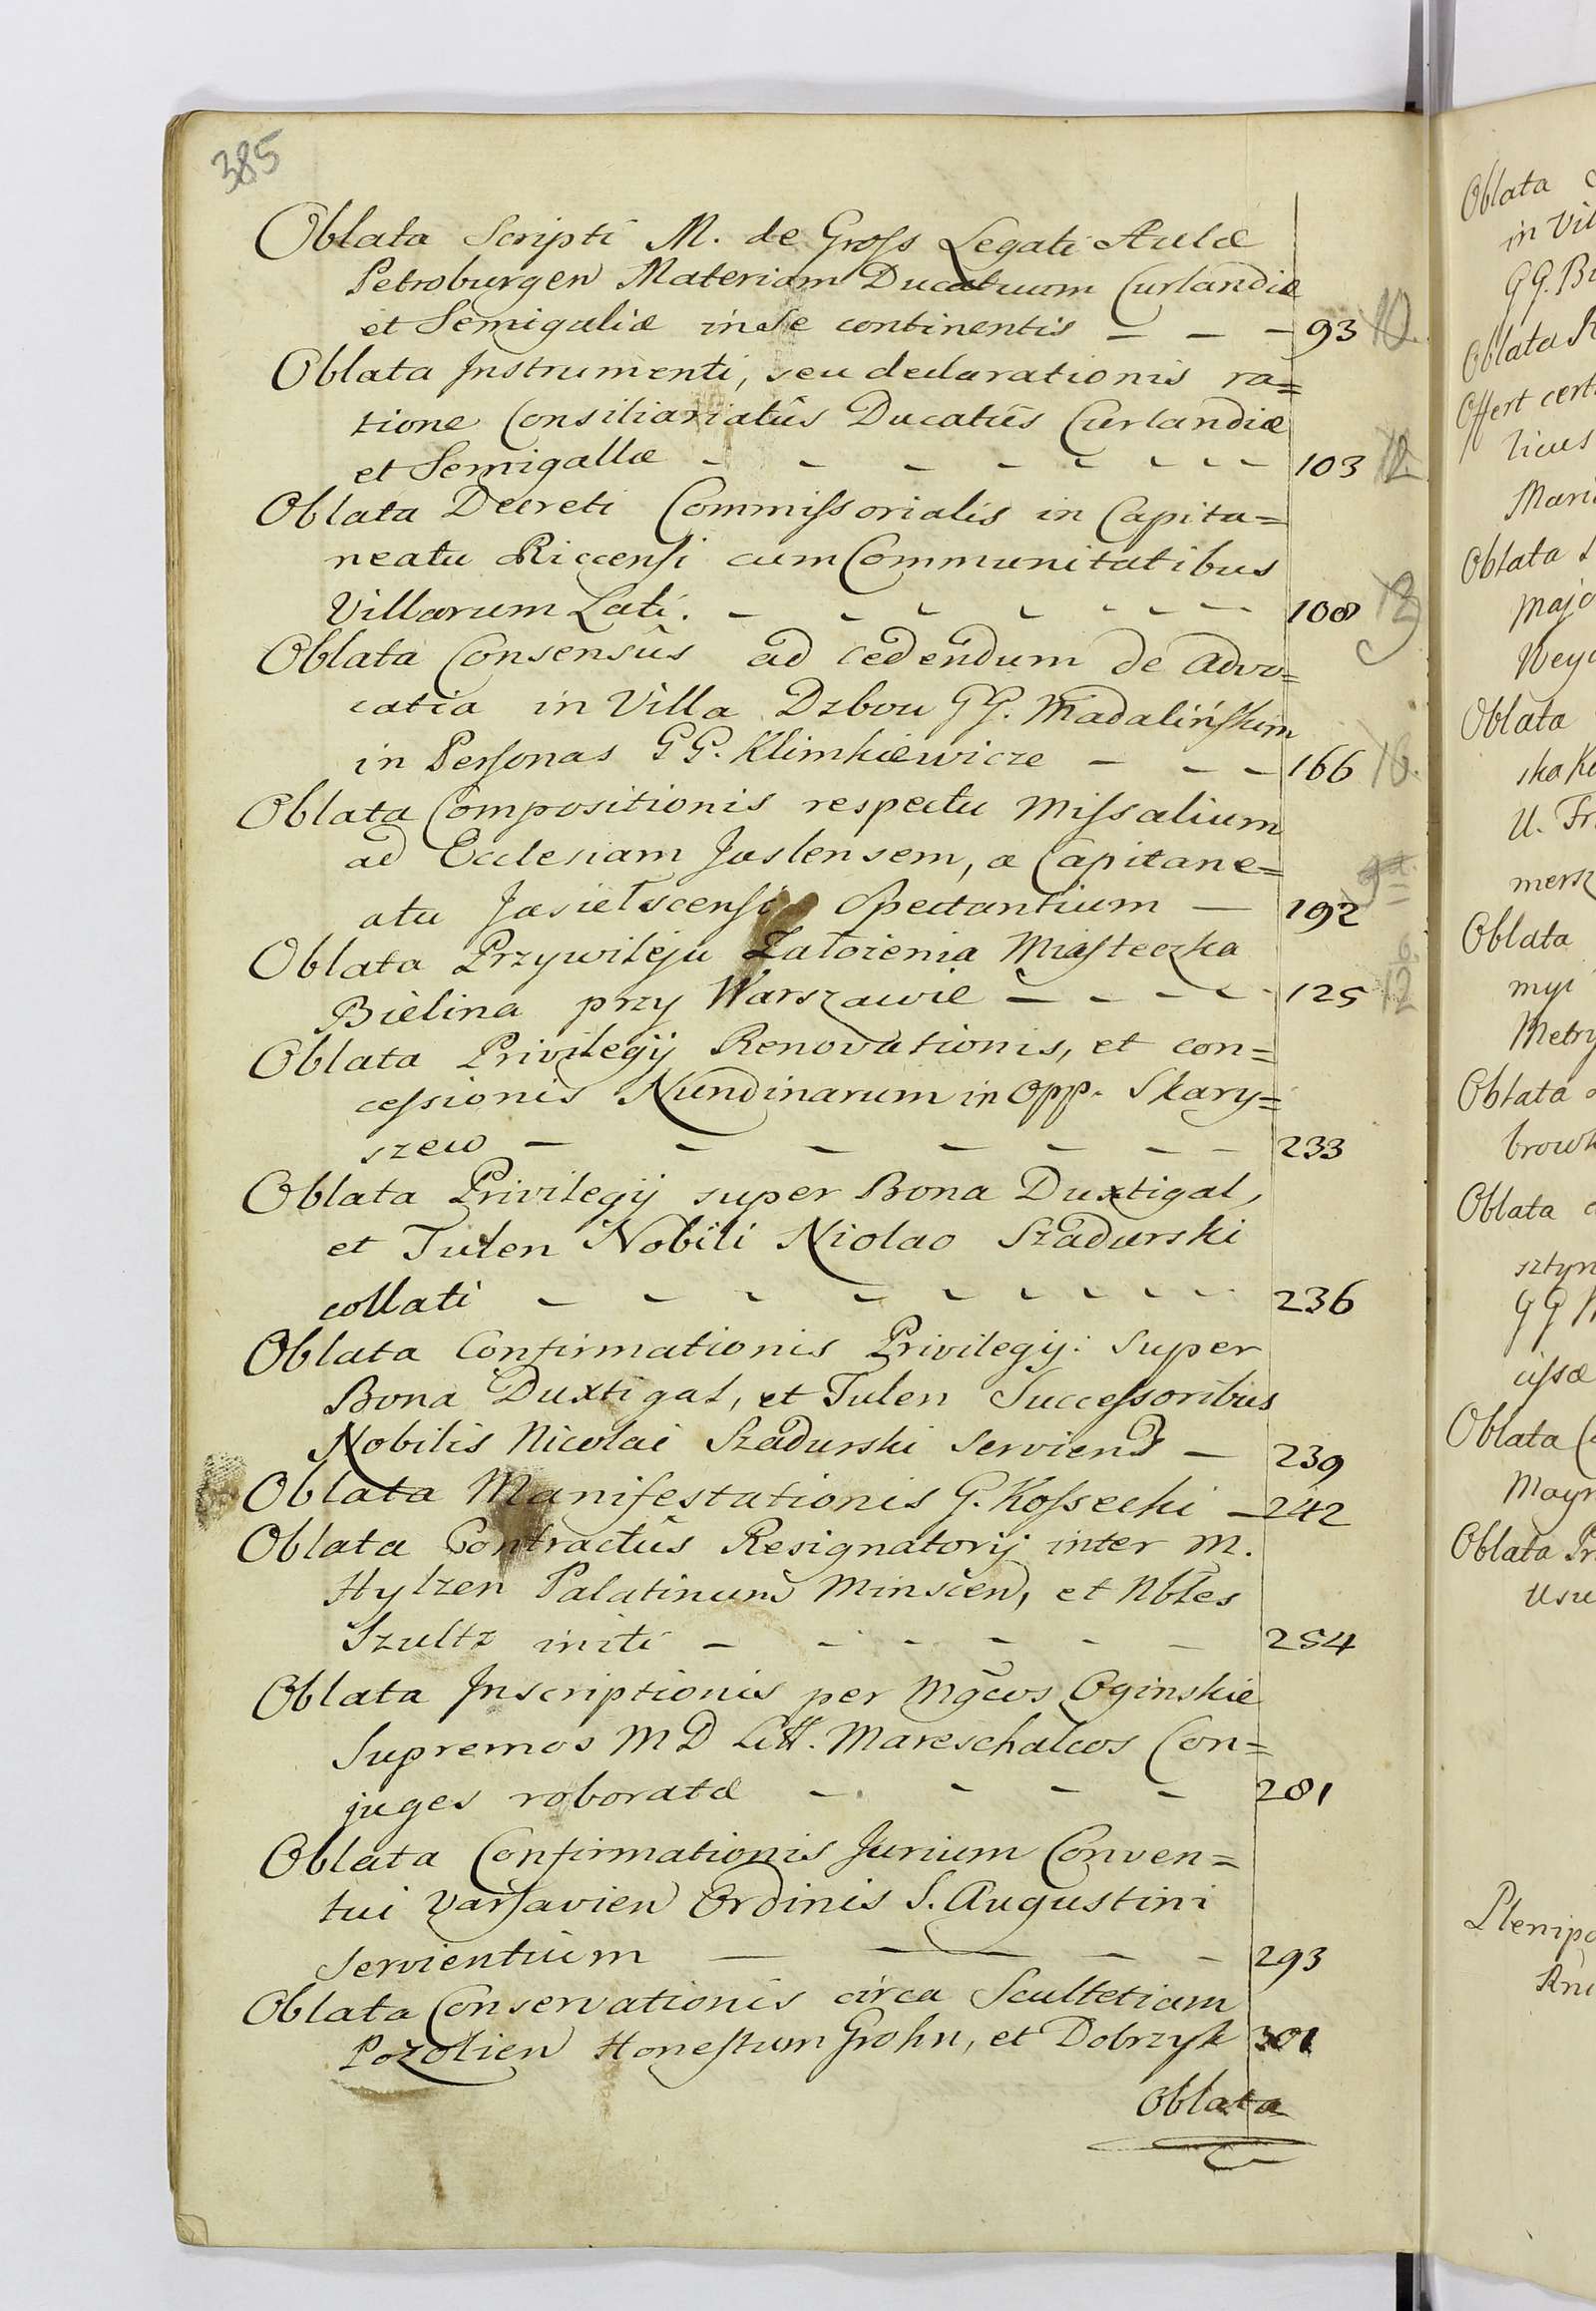 385
Oblata Scripti M. de Gross Legati Aulæ
Petroburgen Materiam Ducatuum Curlandiæ
et Semigaliæ in se continentis — — — 93
Oblata Instrumenti, seu declarationis ra=
tione Consiliariatûs Ducatûs Curlandiæ
et Semigallæ - - - - - - - - 103 12
Oblata Decreti Commissorialis in Capita=
neatu Riccensi cum Communitatibus
Villarum Lati. - - - - - - - - 108
Oblata Consensûs ad cedendum de advo=
catia in Villa Dzbou GG. Madalińskim
in Personas GG. Klimkiewicze - - - 166 16.
Oblata Compositionis respectu Missalium
ad Ecclesiam Jaslensem, a Capitane=
atu Jasielscensi Spectantium — 192
Oblata Przywileju Założenia Miasteczka
Bielina przy Warszawie - - - - - 125 12
Oblata Privilegij Renovationis, et con=
cessionis Nundinarum in Opp. Skary=
szew - - - - - - - 233
Oblata Privilegij super Bona Duxtigal,
et Tulen Nobili Niolao Szadurski
collati - - - - - - - - - 236
Oblata Confirmationis Privilegij. Super
Bona Duxtigal, et Tulen Successoribus
Nobilis Nicolai Szadurski serviens — 239
Oblata Manifestationis G. Kossecki — 242
Oblata Contractûs Resignatorij inter M.
Hylzen Palatinum Minscen, et Nbles
Szultz initi - - - - - - 254
Oblata Inscriptionis per Mg̃cos Oginskie
Supremos MD Litt. Mareschalcos Con=
juges roboratæ - - - - 281
Oblata Confirmationis Jurium Conven=
tui Varsavien Ordinis S. Augustini
Servientium — — - - - 293
Oblata Conservationis circa Scultetiam
Pozolien Honestum Grohn, et Dobrzyk 301
Oblata
Oblata
in Vil
GG. Br
Oblata
Offert cert
licus
Mari
Oblata
majo
Weyo
Oblata
ska Ko
U. Fr
mersz
Oblata
myi
Metry
Oblata
browk
Oblata
sztyn
GG
cissæ
Oblata
Mayn
Oblata Pr
Usu
Plenipo